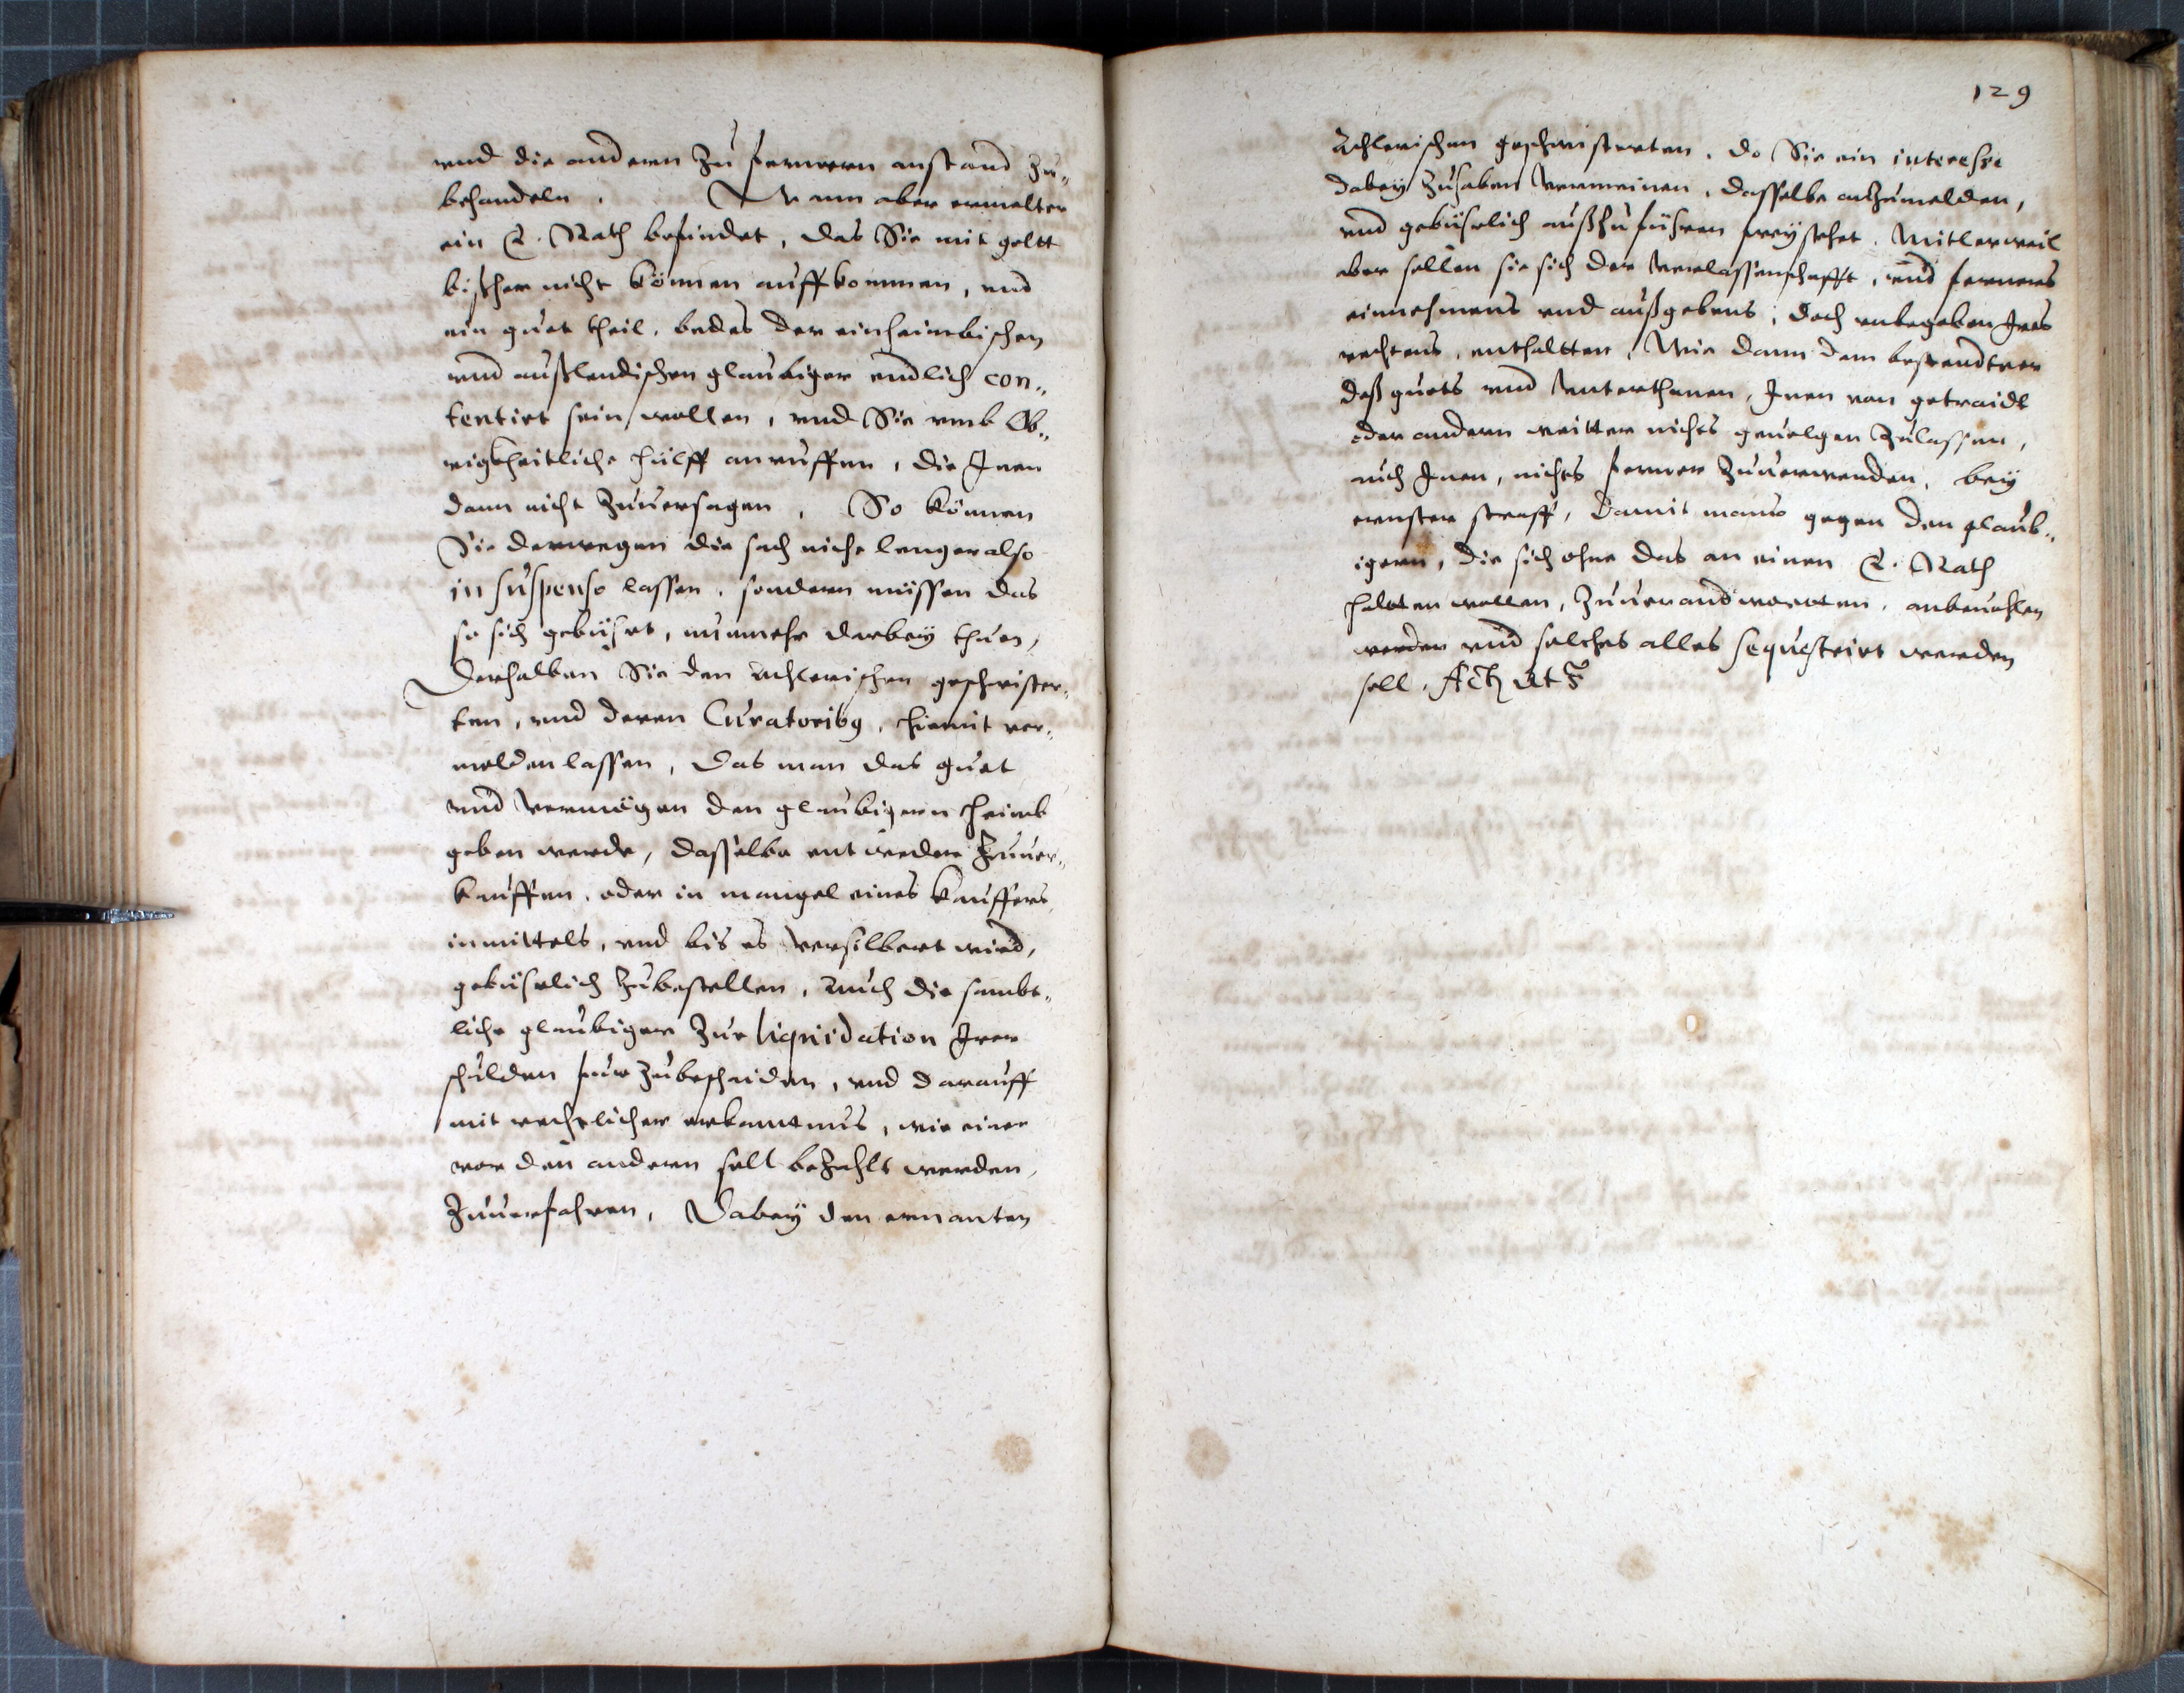 vnd die andern zu fernern anstand zu„
behandeln. Wann aber ermelter
ein E. Rath befindet, das Sie mit geltt
bißher nicht können auffkommen, vnd
ein guet theil, bedes der einheimbischen
vnd außlendischen glaubiger endlich con„
tentirt sein wollen, vnd Sie vmb Ob„
rigkheitliche hülff anruffen, die Jnen
dann nicht zuuersagen, So können
Sie derwegen die sach nicht lenger also
in suspenso lassen, sondern müssen das
so sich gebührt, nunmehr darbey thuen,
Derhalben Sie den Achlerischen geschwister„
ten, vnd deren Curatoribq, hiemit ver„
melden lassen, Das man das guet
vnd vermögen den glaubigern heimb
geben werde, dasselbe entweder zuuer„
kauffen, oder in mangel eines kauffers,
inmittels, vnd bis es versilbert wird,
gebührlich zubestellen, Auch die sambt„
liche glaubiger zur liquidation Jrer
schulden furzubescheiden, vnd darauff
mit rechtlicher erkanntnus, wie einer
vor den andern soll bezahlt werden,
zuuerfahren, Dabey den ernanten
129
Achlerischen geschwisterten, do Sie ein interesse
dabey zuhaben vermeinen, dasselbe anzumelden,
vnd gebührlich außzuführen freystehet. Mitlerweil
aber sollen sie sich der verlassenschafft, vnd ferners
einnehmens vnd außgebens, doch vnbegeben Jres
rechtens, enthaltten, Wie dann dem bestendtner
deß guets vnd vnterthanen, Jnen von getraidt
oder andern weitter nichts geuolgen zulassen,
auch Jnen, nichts ferner zuuerwenden, bey
ernster straff, damit mans gegen den glaub„
igern, die sich ohne das an einen E. Rath
haltten wollen, zuuerandtwortten, anbeuohlen
worden vnd solches alles sequestrirt werden
soll.